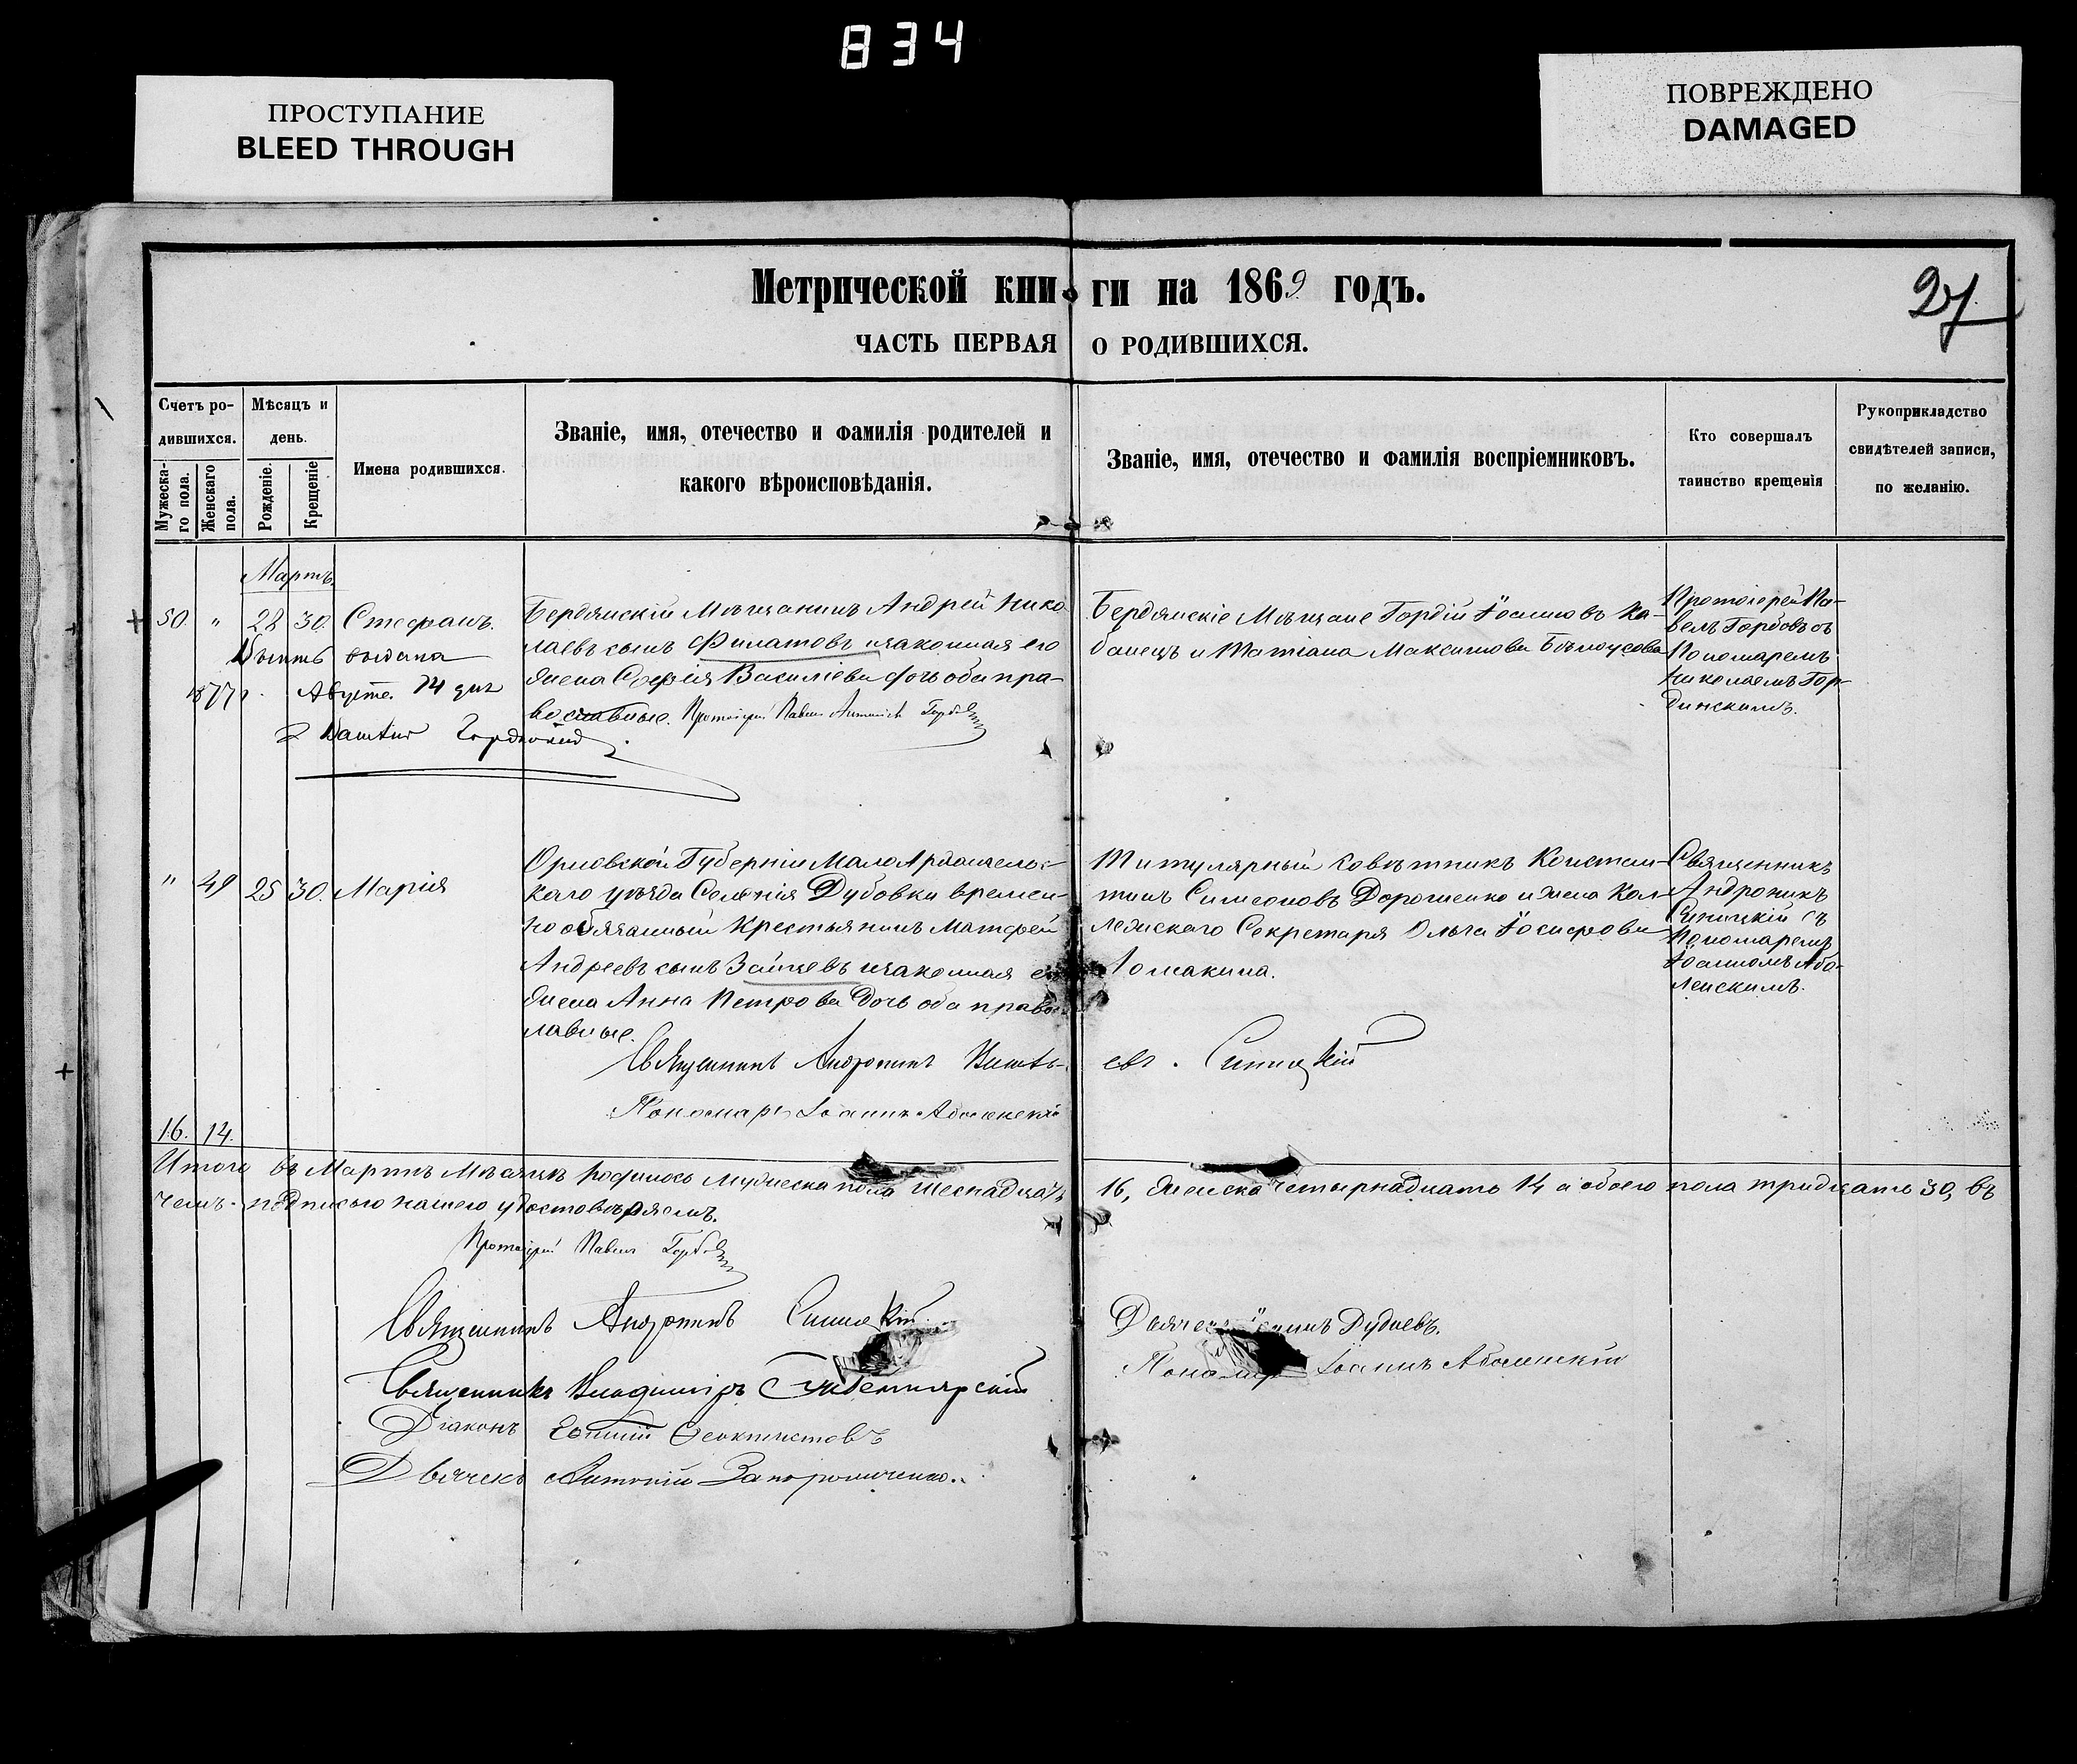 834
ПРОСТУПАНИЕ
BLEED THROUGH
ПОВРЕЖДЕНО
DAMAGED
Метрической книги на 1869 годъ.
27
ЧАСТЬ ПЕРВАЯ О РОДИВШИХСЯ.
Счетъ родившихся.
Мужескаго пола.
Женскаго пола.
Мѣсяцъ и день.
Рожденіе.
Крещеніе
Имена родившихся.
Званіе, имя, отечество и фамилія родителей и
какого вѣроисповѣданія.
Званіе, имя, отечество и фамилія воспріемниковъ.
Кто совершалъ
таинство крещенія
Рукоприкладство
свидѣтелей записи,
по желанію.
Мартъ
50. " 28 30. Стефанъ.
выдана
1877 г. Августа 14 дня
Бердянскій Мѣщанинъ Андрей Нико
лаевъ сынъ Филатовъ и законная его
жена Софія Василіева дочь оба пра-
вославные. Протоіерей Павелъ
Бердянскіе Мѣщане Гордій Іоанновъ Ка-
банецъ и Татіана Максимова Бѣлоусова
Протоіерей Па-
велъ Гербовъ съ
Пономаремъ
Николаемъ Гор-
динскимъ.
" 49 25 30. Марія
Орловской Губерніи МалоАрхангельс-
каго уѣзда Селенія Дубовки времен-
но обязанный Крестьянинъ Матфей
Андреевъ сынъ Зайцевъ и законная его
жена Анна Петрова дочь оба право-
лавные.
Титулярный Совѣтникъ Констан-
тинъ Симеоновъ Дорошенко и жена Кол-
лежскаго Секретаря Ольга Іосифова
Ломакина.
Священникъ
Андроникъ
Синицкій съ
Пономаремъ
Іоанномъ Або-
ленскимъ.
Священникъ Андроникъ Синицкій
Пономарь Іоаннъ Аболенскій
16. 14.
Итого въ Мартѣ Мѣсяцѣ родилось Мужеска пола Шеснадцать 16, Женска Четырнадцать 14 а обоего пола тридцать 30, въ
чемъ подписью нашею удостовѣряемъ.
Протоіерей Павелъ
Священникъ Андроникъ Синицкій
Священникъ Владиміръ
Діаконъ Феоктистовъ
Дьячекъ Антоній Запорожченко.
Дьячекъ Іоаннъ Дудневъ.
Пономарь Іоаннъ Аболенскій